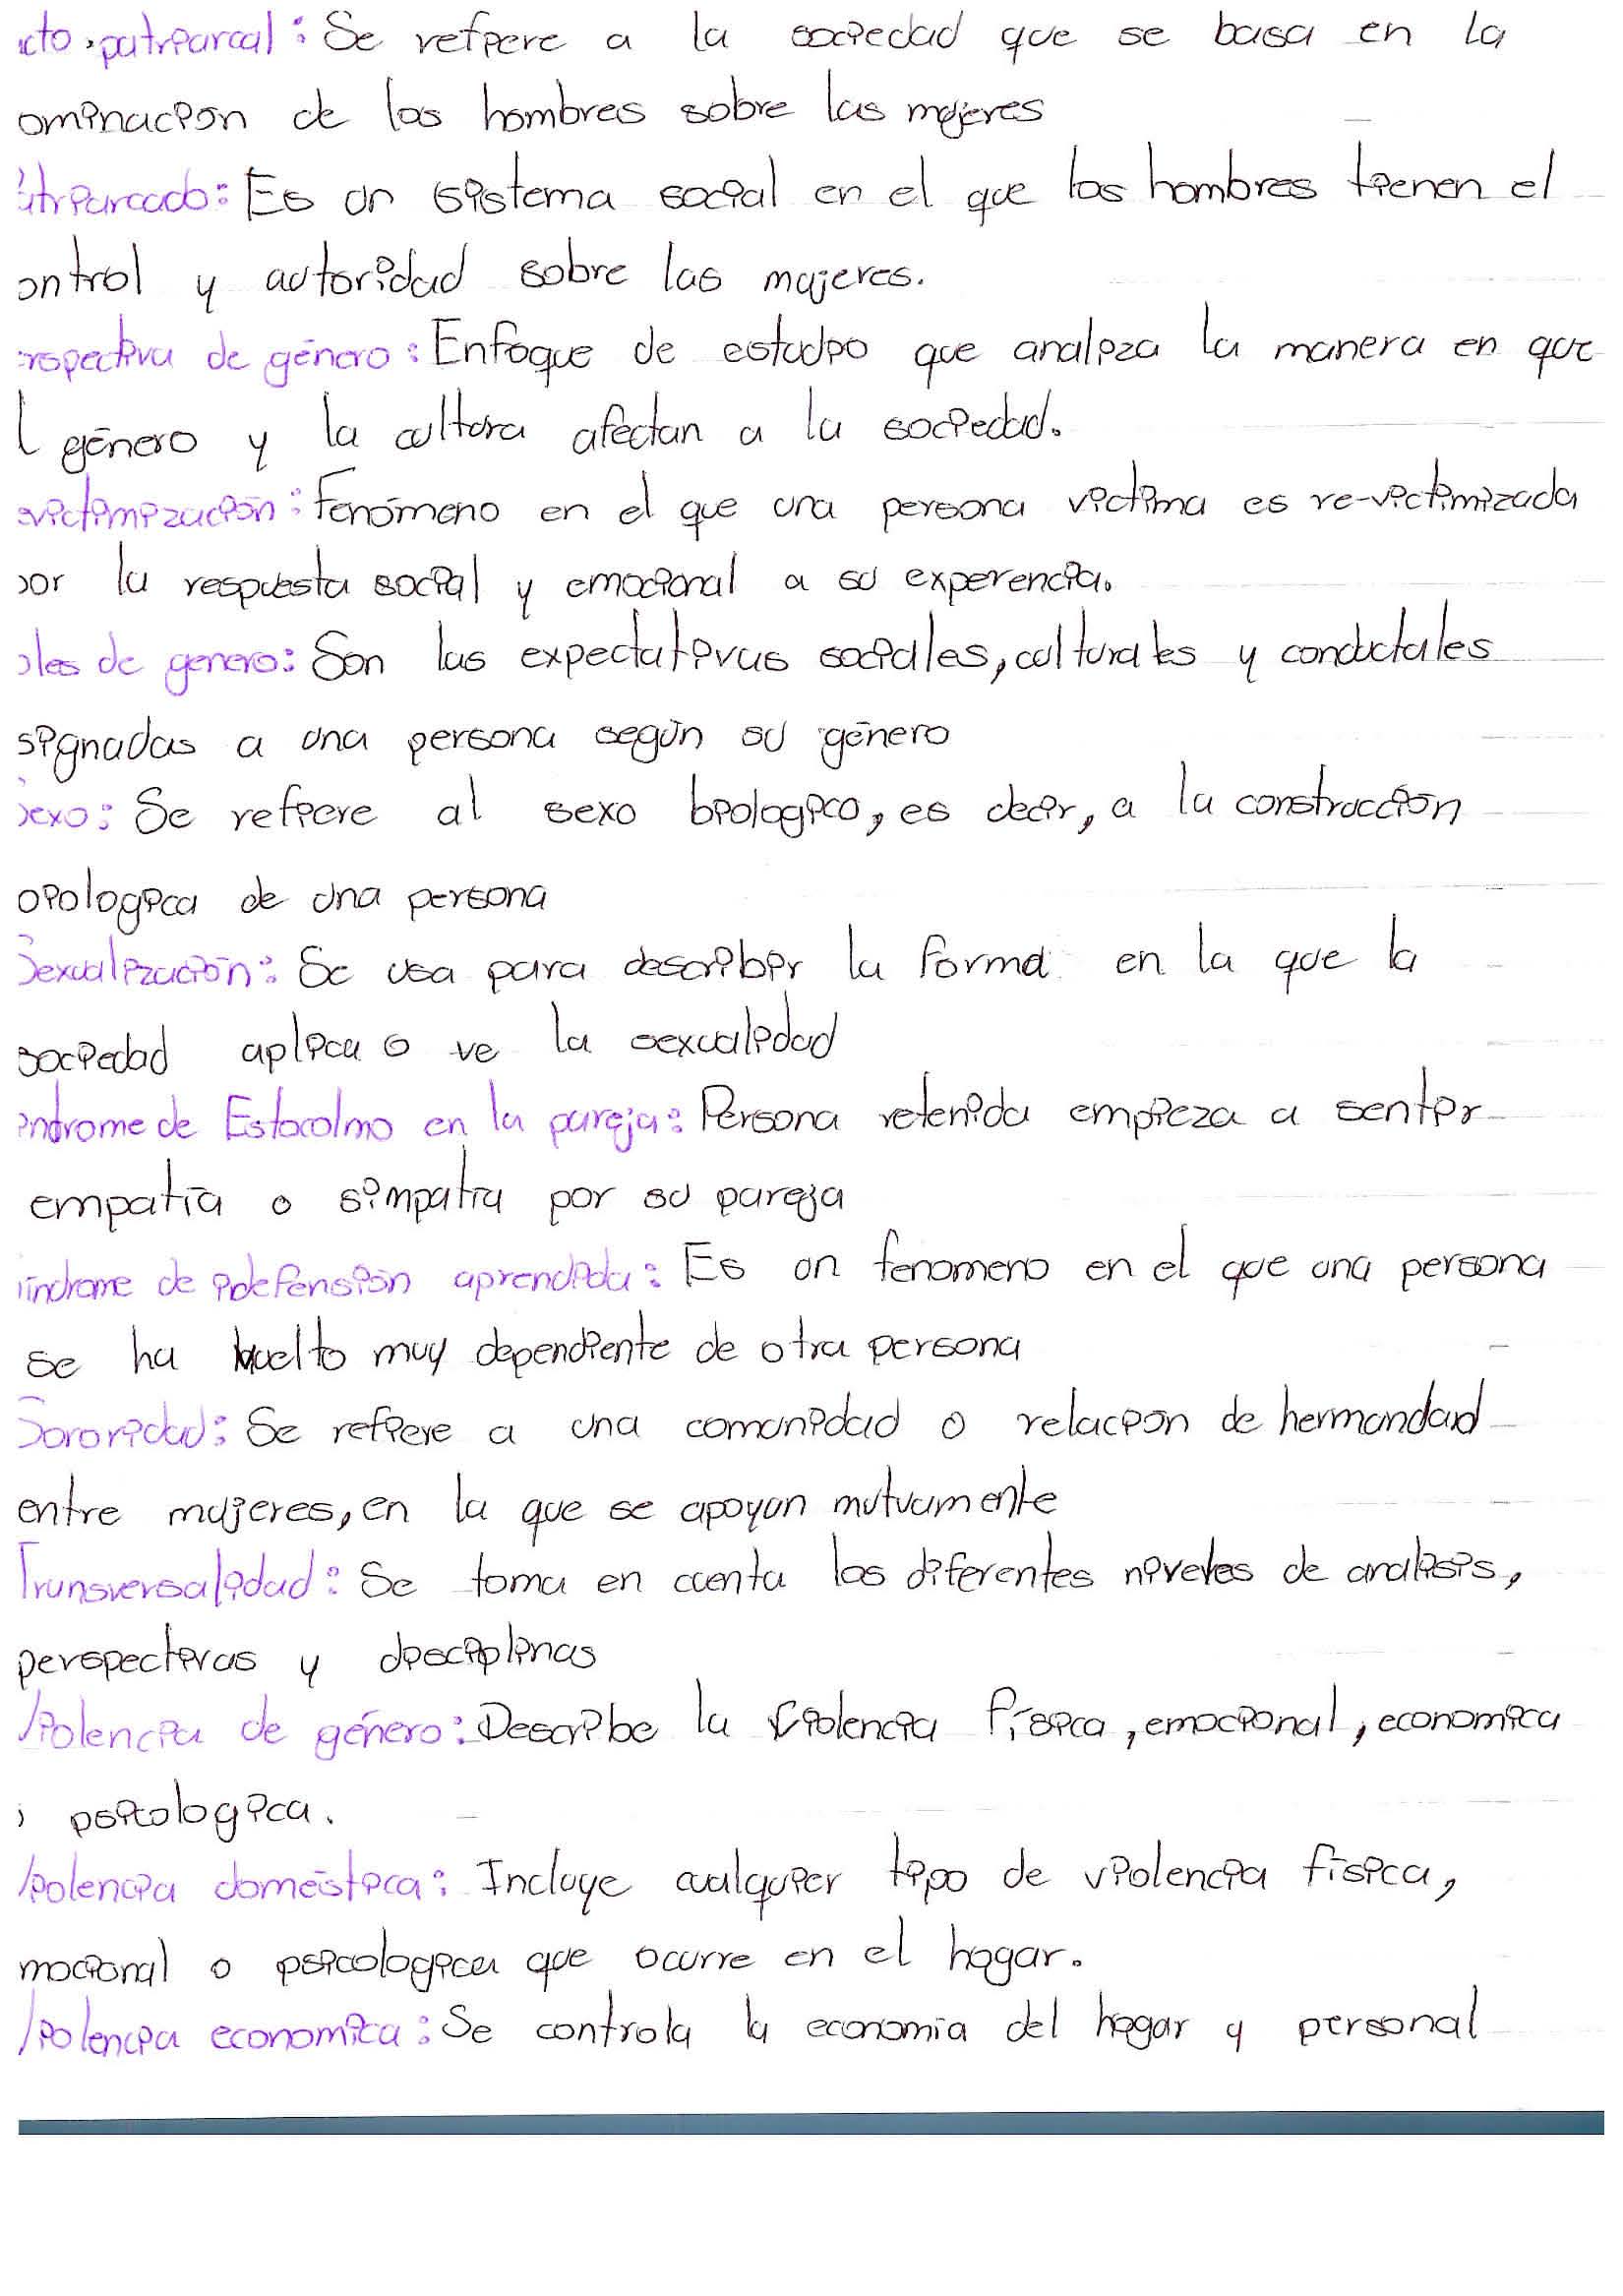 cto patriarcal: Se refiere a la sociedad que se basa en la
ominación de los hombres sobre las mujeres
atriarcado: Es un sistema social en el que los hombres tienen el
ontrol y autoridad sobre las mujeres.
erspectiva de género: Enfoque de estudio que analiza la manera en que
l género y la cultura afectan a la sociedad.
evictimización: Fenómeno en el que una persona victima es re-victimizada
por la respuesta social y emocional a su experencia.
oles de genero: Son las expectativas sociales, culturales y conductales
signadas a una persona según su género
Sexo: Se refiere al sexo biologico, es decir, a la construcción
biologica de una persona
Sexualización: Se usa para describir la forma en la que la
sociedad aplica o ve la sexualidad
índrome de Estocolmo en la pareja: Persona retenida empieza a sentir
empatía o simpatía por su pareja
índrome de idefensión aprendida: Es un fenomeno en el que una persona
se ha vuelto muy dependiente de otra persona
Sororidad: Se refiere a una comunidad o relación de hermandad
entre mujeres, en la que se apoyan mutuamente
Transversalidad: Se toma en cuenta los diferentes niveles de analisis,
perspectivas y disciplinas
Violencia de género: Describe la violencia física, emocional, economica
o psicologica.
Violencia doméstica: Incluye cualquier tipo de violencia física,
mocional o psicologica que ocurre en el hogar.
Violencia economica: Se controla la economía del hogar y personal